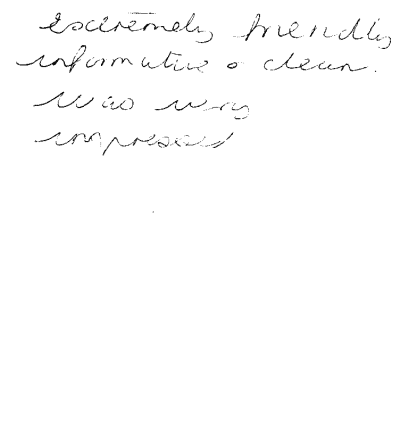 extremely friendly
informative & clean.
Was very
impressed